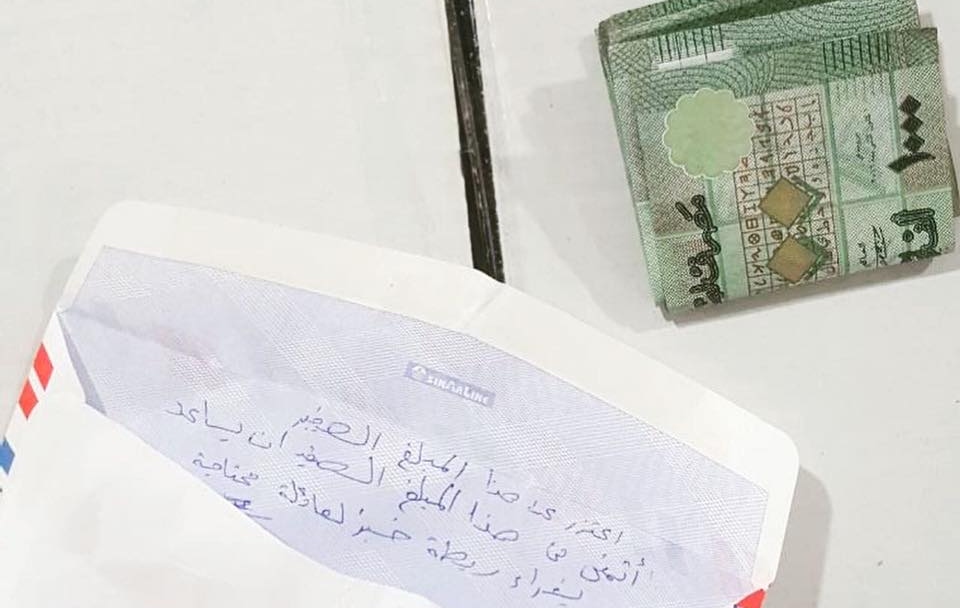 ١٠٠٠
مصرف
SINARLINE
اعتذر عن هذا المبلغ الصغير
أتمنى هذا المبلغ الصغير ان يساعد
بشراء ربطة خبز لعائلة محتاجة